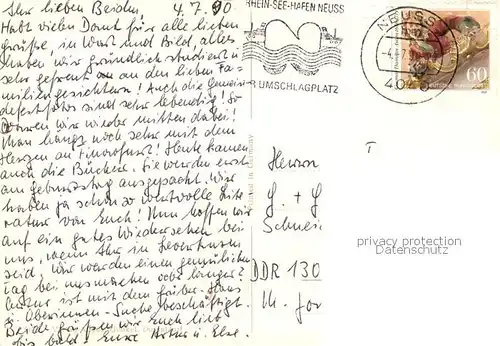 Ihr lieben Beiden 4.7.90
Habt vielen Dank für alle lieben
Grüße, in Wort und Bild, alles
haben wir gründlich studiert u.
sehr gefreut an den lieben Fa-
miliengesichtern! Auch die Gemein-
defestfotos sind sehr lebendig! So
waren wir wieder mitten dabei!
Man hängt noch sehr mit dem
Herzen an! Heute kamen
auch die Bücher. Sie werden erst
am Geburtstag ausgepackt. Wir
haben ja schon so wertvolle Lite
ratur von Euch! Nun hoffen wir
auf ein gutes Wiedersehen bei
uns, wenn Ihr in Leverkusen
seid. Wir werden einen gemütlichen
Tag bei uns machen oder länger?
ist mit dem
Oberinnen-Suche beschäftigt.
Beide grüßen wir Euch lieb
bis bald! Eure u. Else.
RHEIN-SEE-HAFEN NEUSS
R UMSCHLAGPLATZ
NEUSS
60
Herrn
G. + G.
Schnei
DDR 130
privacy protection
Datenschutz